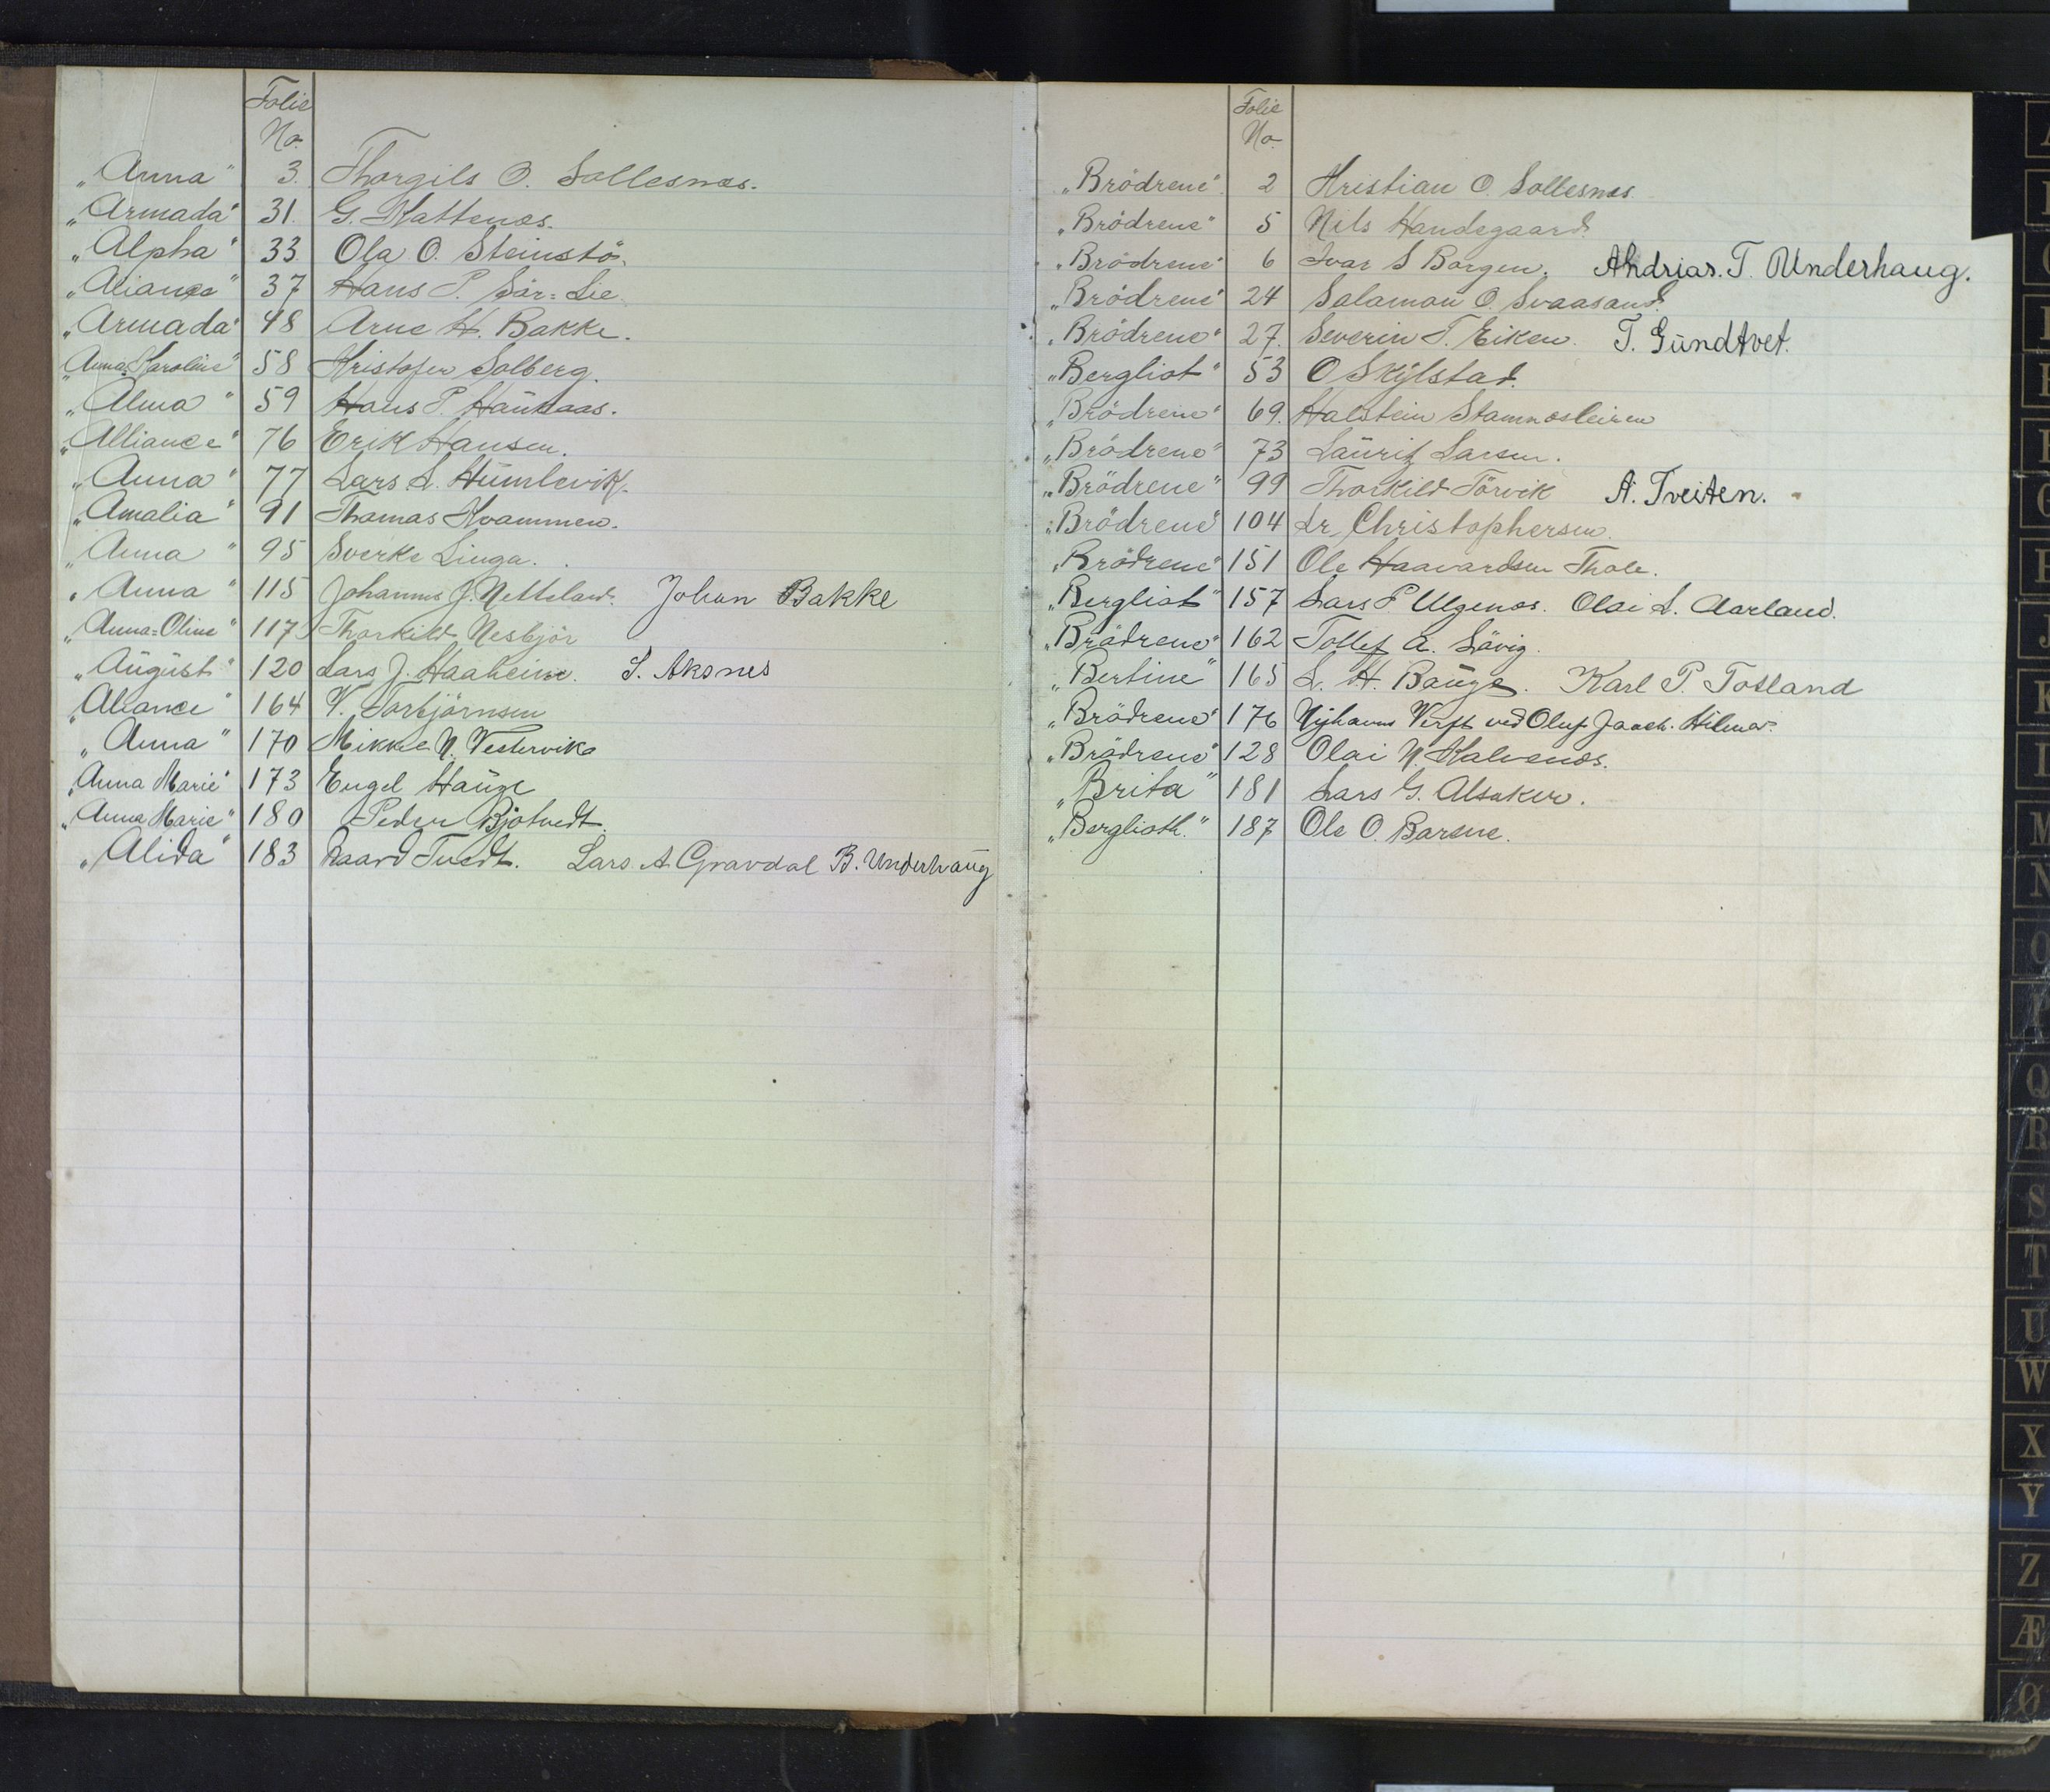 Folie
No.
„Anna" 3. Thorgils O. Sollesnæs.
„Armada" 31. G. Kattenæs.
„Alpha" 33 Ola O. Steinstö.
„Aliance" 37 Hans P. Sör=Lie
„Armada" 48 Arne H. Bakke.
„Anna Karoline" 58 Kristofer Solberg.
„Alma" 59 Hans P. Haukaas.
„Alliance" 76 Erik Hansen.
„Anna" 77 Lars L. Humlevik.
„Amalia" 91 Thomas Kvammen.
„Anna" 95 Sverke Linga.
„Anna" 115 Johannes J. Netteland. Johan Bakke
„Anna=Oline" 117 Thorkild Nesbjör
„August" 120 Lars J. Haaheim. S. Aksnes
„Aliance" 164 V. Torbjörnsen
„Anna" 170 Mikkel N. Vestervik
„Anna Marie" 173 Engel Hauge
„Anna Marie" 180 Peder Bjotvedt
„Alida" 183 Baard Tvedt. Lars A. Gravdal B. Underhaug
Folie
No.
„Brödrene" 2 Kristian O. Sollesnæs.
„Brödrene" 5 Nils Handegaard.
„Brödrene" 6 Ivar S Borgen. Andrias. T. Underhaug.
„Brödrene" 24 Salamon O. Svaasand.
„Brödrene" 27. Severin T. Eiken. T. Gundtvet.
„Bergliot" 53 O Skÿlstad.
„Brödrene" 69. Halstein Stamnæsleiren
„Brödrene" 73 Lauritz Larsen.
„Brödrene" 99 Thorkild Törvik A. Tveiten.
„Brödrene" 104 Lr. Christophersen.
„Brödrene" 151 Ole Haavardsen Thole.
„Bergliot" 157 Lars P. Ulgenæs. Olai L. Aarland.
„Brödrene" 162 Tollef A. Lövig.
„Bertine" 165 L. H. Bauge. Karl P. Tosland
„Brödrene" 176 Nyhavns Verft ved Oluf Joach. Hilmar.
„Brödrene" 128 Olai N. Kalvenæs.
„Brita" 181 Lars G. Alsaker.
„Berglioth." 187 Ole O. Barsne.
Q
R
S
T
U
W
X
Y
Z
Æ
Ø